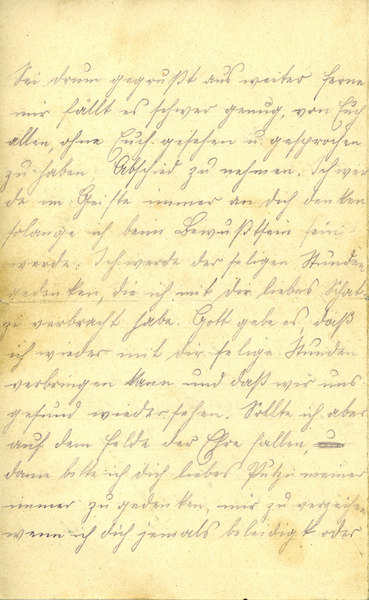 Sei drum gegrüßt aus weiter ferne
mir fällt es schwer genug, von Euch
allen, ohne Euch gesehen u. gesprochen
zu haben Abschied zu nehmen. Ich wer
de im Geiste immer an dich denken
solange ich beim Bewußtsein sein
werde. Ich werde der seligen Stunden
gedenken, die ich mit dir liebes Schat-
zi verbracht habe. Gott gebe es, daß
ich wieder mit dir selige Stunden
verbringen kann und daß wir uns
gesund wiedersehen. Sollte ich aber
auf dem Felde der Ehre fallen, u
dann bitte ich dich liebes Putzi meiner
immer zu gedenken, mir zu verzeihen
wenn ich dich jemals beleidigt oder